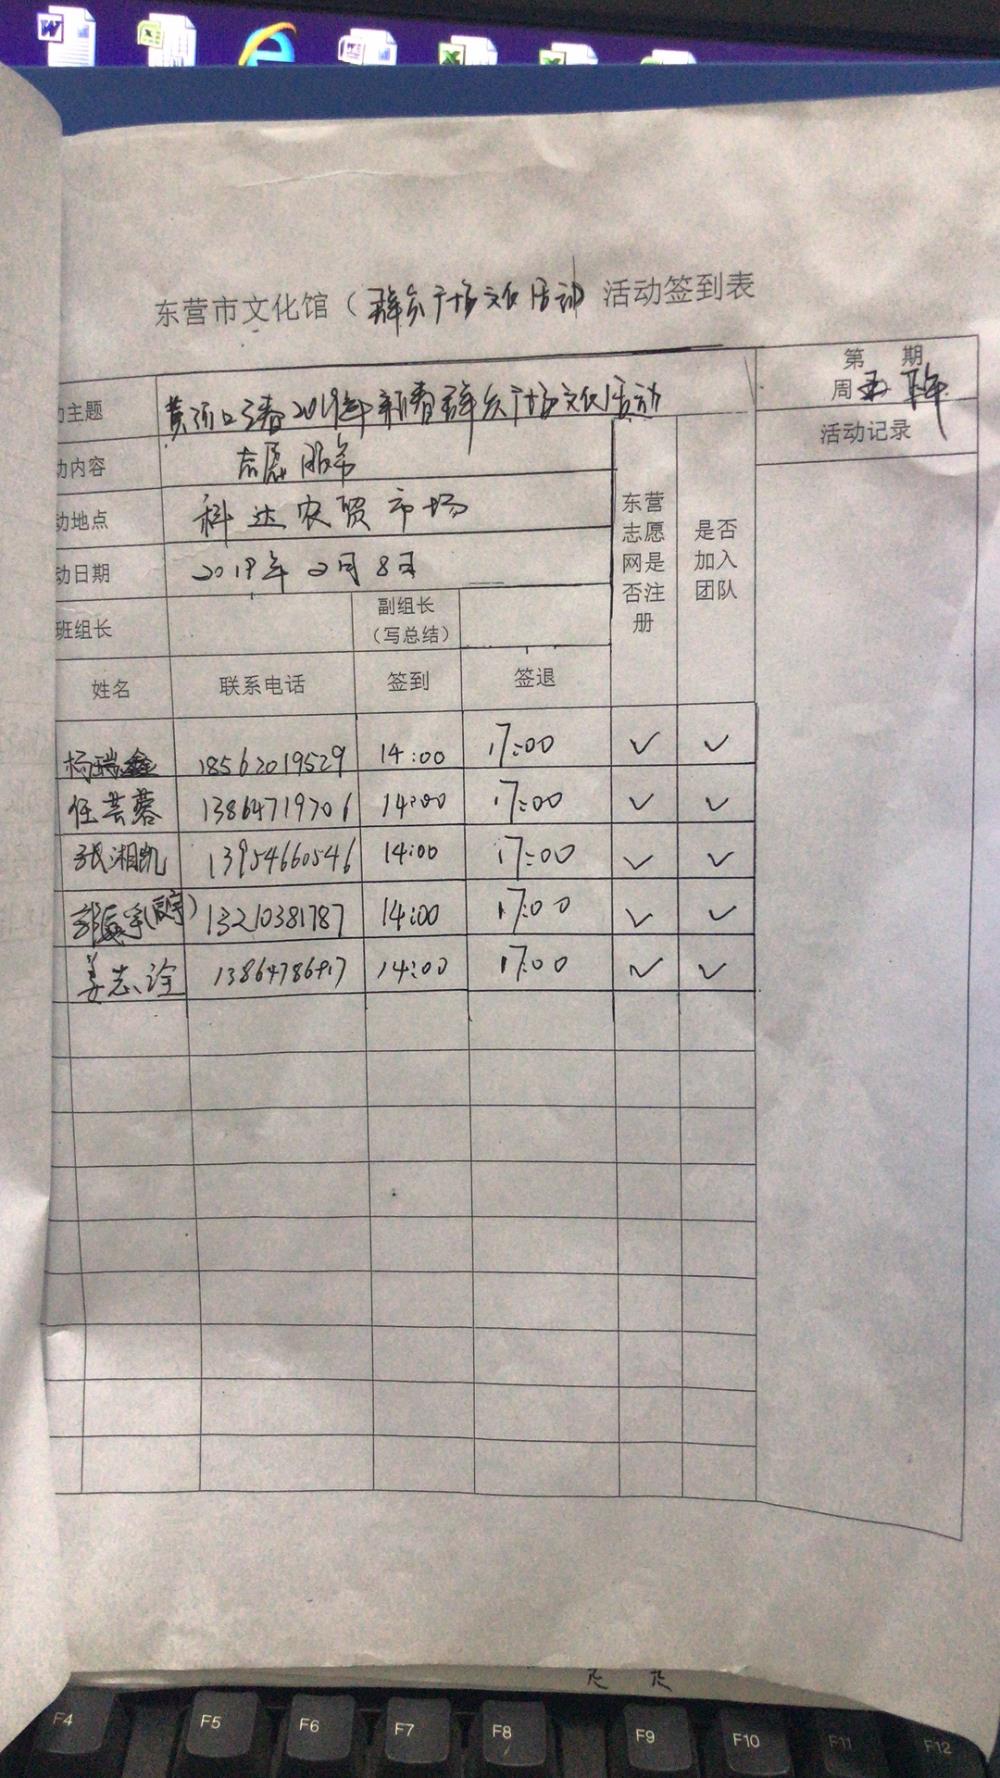 东营市文化馆（群众广场文化活动）活动签到表
第 期
周五 下午
动主题 黄河口之春2019年新春群众广场文化活动
活动记录
动内容 志愿服务
动地点 科达农贸市场
动日期 2019年2月8日
东营志愿网是否注册
是否加入团队
班组长 副组长（写总结）
姓名 联系电话 签到 签退
杨瑞鑫 18562019529 14:00 17:00 ✓ ✓
任芸蓉 13864719706 14:00 17:00 ✓ ✓
张湘凯 13954660546 14:00 17:00 ✓ ✓
13210381787 14:00 17:00 ✓ ✓
姜志诠 14:00 17:00 ✓ ✓
F4 F5 F6 F7 F8 F9 F10 F11 F12